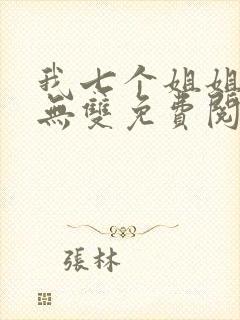 我七个姐姐
無雙免費閱
張林